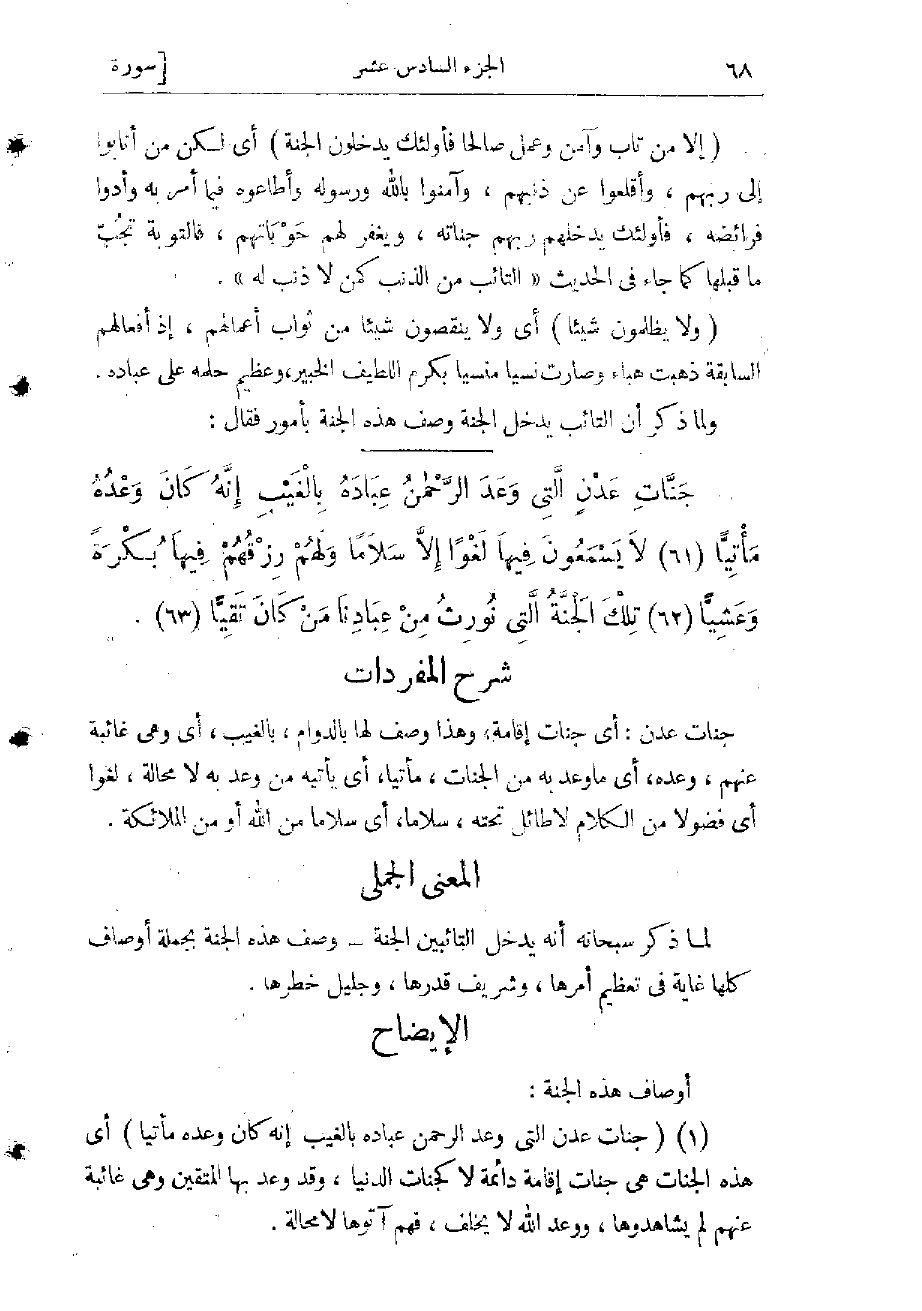 ٦٨ الجزء السادس عشر [سورة
( إلا من تاب وآمن وعمل صالحا فأولئك يدخلون الجنة ) أى لكن من أنابوا
إلى ربهم ، وأقلعوا عن ذنبهم ، وآمنوا بالله ورسوله وأطاعوه فيما أمر به وأدوا
فرائضه ، فأولئك يدخلهم ربهم جناته ، ويغفر لهم حَوْباتهم ، فالتوبة تجُبّ
ما قبلها كما جاء فى الحديث « التائب من الذنب كمن لا ذنب له » .
( ولا يظلمون شيئا ) أى ولا ينقصون شيئا من ثواب أعمالهم ، إذ أفعالهم
السابقة ذهبت هباء وصارت نسيا منسيا بكرم اللطيف الخبير، وعظيم حلمه على عباده .
ولما ذكر أن التائب يدخل الجنة وصف هذه الجنة بأمور فقال :
جَنَّاتِ عَدْنٍ الَّتِى وَعَدَ الرَّحْمٰنُ عِبَادَهُ بِالْغَيْبِ إِنَّهُ كَانَ وَعْدُهُ
مَأْتِيًّا (٦١) لاَ يَسْمَعُونَ فِيهاَ لَغْوًا إِلاَّ سَلاَمًا وَلَهُمْ رِزْقُهُمْ فِيهاَ بُكْرَةً
وَعَشِيًّا (٦٢) تِلْكَ الْجَنَّةُ الَّتِى نُورِثُ مِنْ عِبَادِنَا مَنْ كَانَ تَقِيًّا (٦٣) .
شرح المفردات
جنات عدن : أى جنات إقامة؛ وهذا وصف لها بالدوام ، بالغيب ، أى وهى غائبة
عنهم ، وعده، أى ماوعد به من الجنات ، مأتيا، أى يأتيه من وعد به لا محالة ، لغوا
أى فضولا من الكلام لاطائل تحته ، سلاما، أى سلاما من الله أو من الملائكة .
المعنى الجملى
لما ذكر سبحانه أنه يدخل التائبين الجنة – وصف هذه الجنة بجملة أوصاف
كلها غاية فى تعظيم أمرها ، وشريف قدرها ، وجليل خطرها .
الإيضاح
أوصاف هذه الجنة :
(١) ( جنات عدن التى وعد الرحمن عباده بالغيب إنه كان وعده مأتيا ) أى
هذه الجنات هى جنات إقامة دائمة لا كجنات الدنيا ، وقد وعد بها المتقين وهى غائبة
عنهم لم يشاهدوها ، ووعد الله لا يخلف ، فهم آتوها لامحالة .